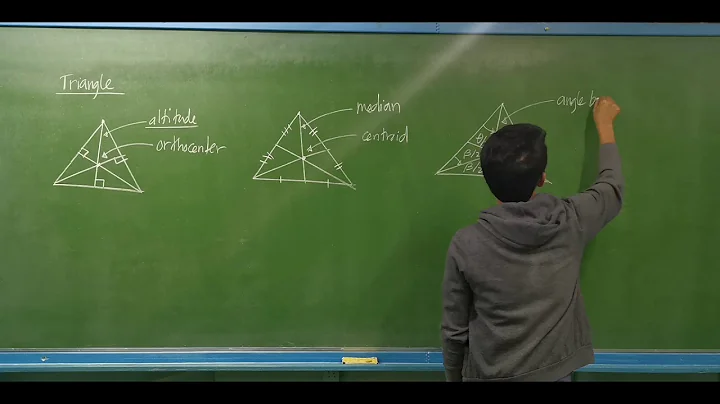 Triangle
altitude
orthocenter
median
centroid
angle b
β/2
β/2